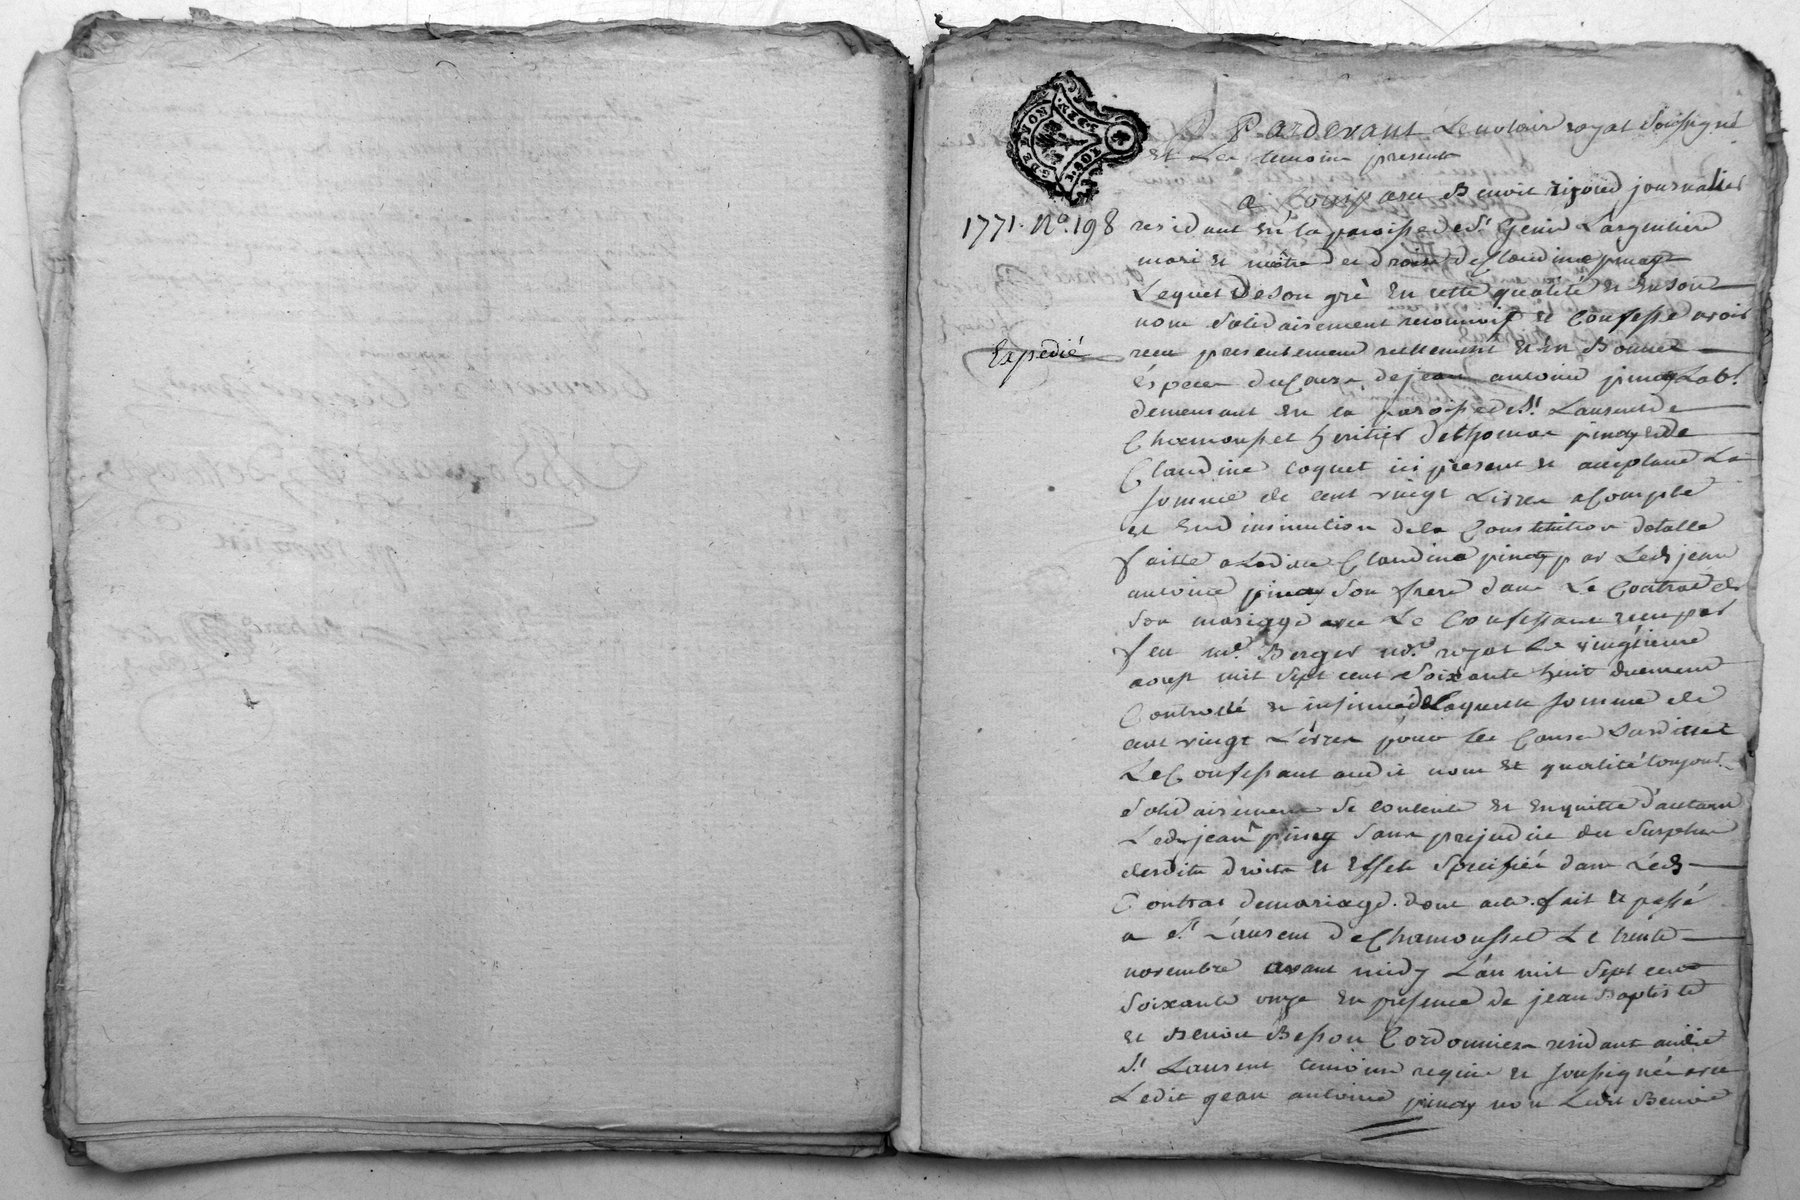 Pardevant Le notaire royal soussigné
et Les temoins presents
a Comparu Benoit rijoud journalier
1771. No. 198
residant En la paroisse de St. Genis Largentiere
mari et maitre des droits de Claudine pinay
Lequel De son gré En cette qualité et En son
nom solidairement reconnoist et Confesse avoir
Expedié
recu presentement reellement et En Bonnes
Especes du Cours, de jean antoine pinay Labr.
demeurant En la paroisse de St. Laurent de
Chamousset heritier de thomas pinay et de
Claudine coquet ici present et acceptant La
somme de cent vingt Livres a Compte
et En diminution de la Constitution dotalle
faitte a Ladite Claudine pinay par Led. jean
antoine pinay son frere dans Le Contrat de
son mariage avec Le Confessant recu par
feu me. Berger no.re royal Le vingtieme
aoust mil sept cent soixante huit duement
Controllé et insinué de Laquelle somme de
cent vingt Livres pour les Causes susdittes
Le Confessant audit nom et qualité toujours
solidairement se contente et En quitte d'autant
Led. jean pinay sans prejudice du surplus
desdits droits et Effets specifiés dans Led.
Contrat de mariage. dont acte. fait et passé
a St. Laurent De Chamousset Le trente
novembre avant midy L'an mil sept cent
soixante onze En presence de jean Baptiste
et Benoit Besson Cordonniers residant audit
St. Laurent temoins requis et soussignés avec
Ledit jean antoine pinay non Ledit Benoit